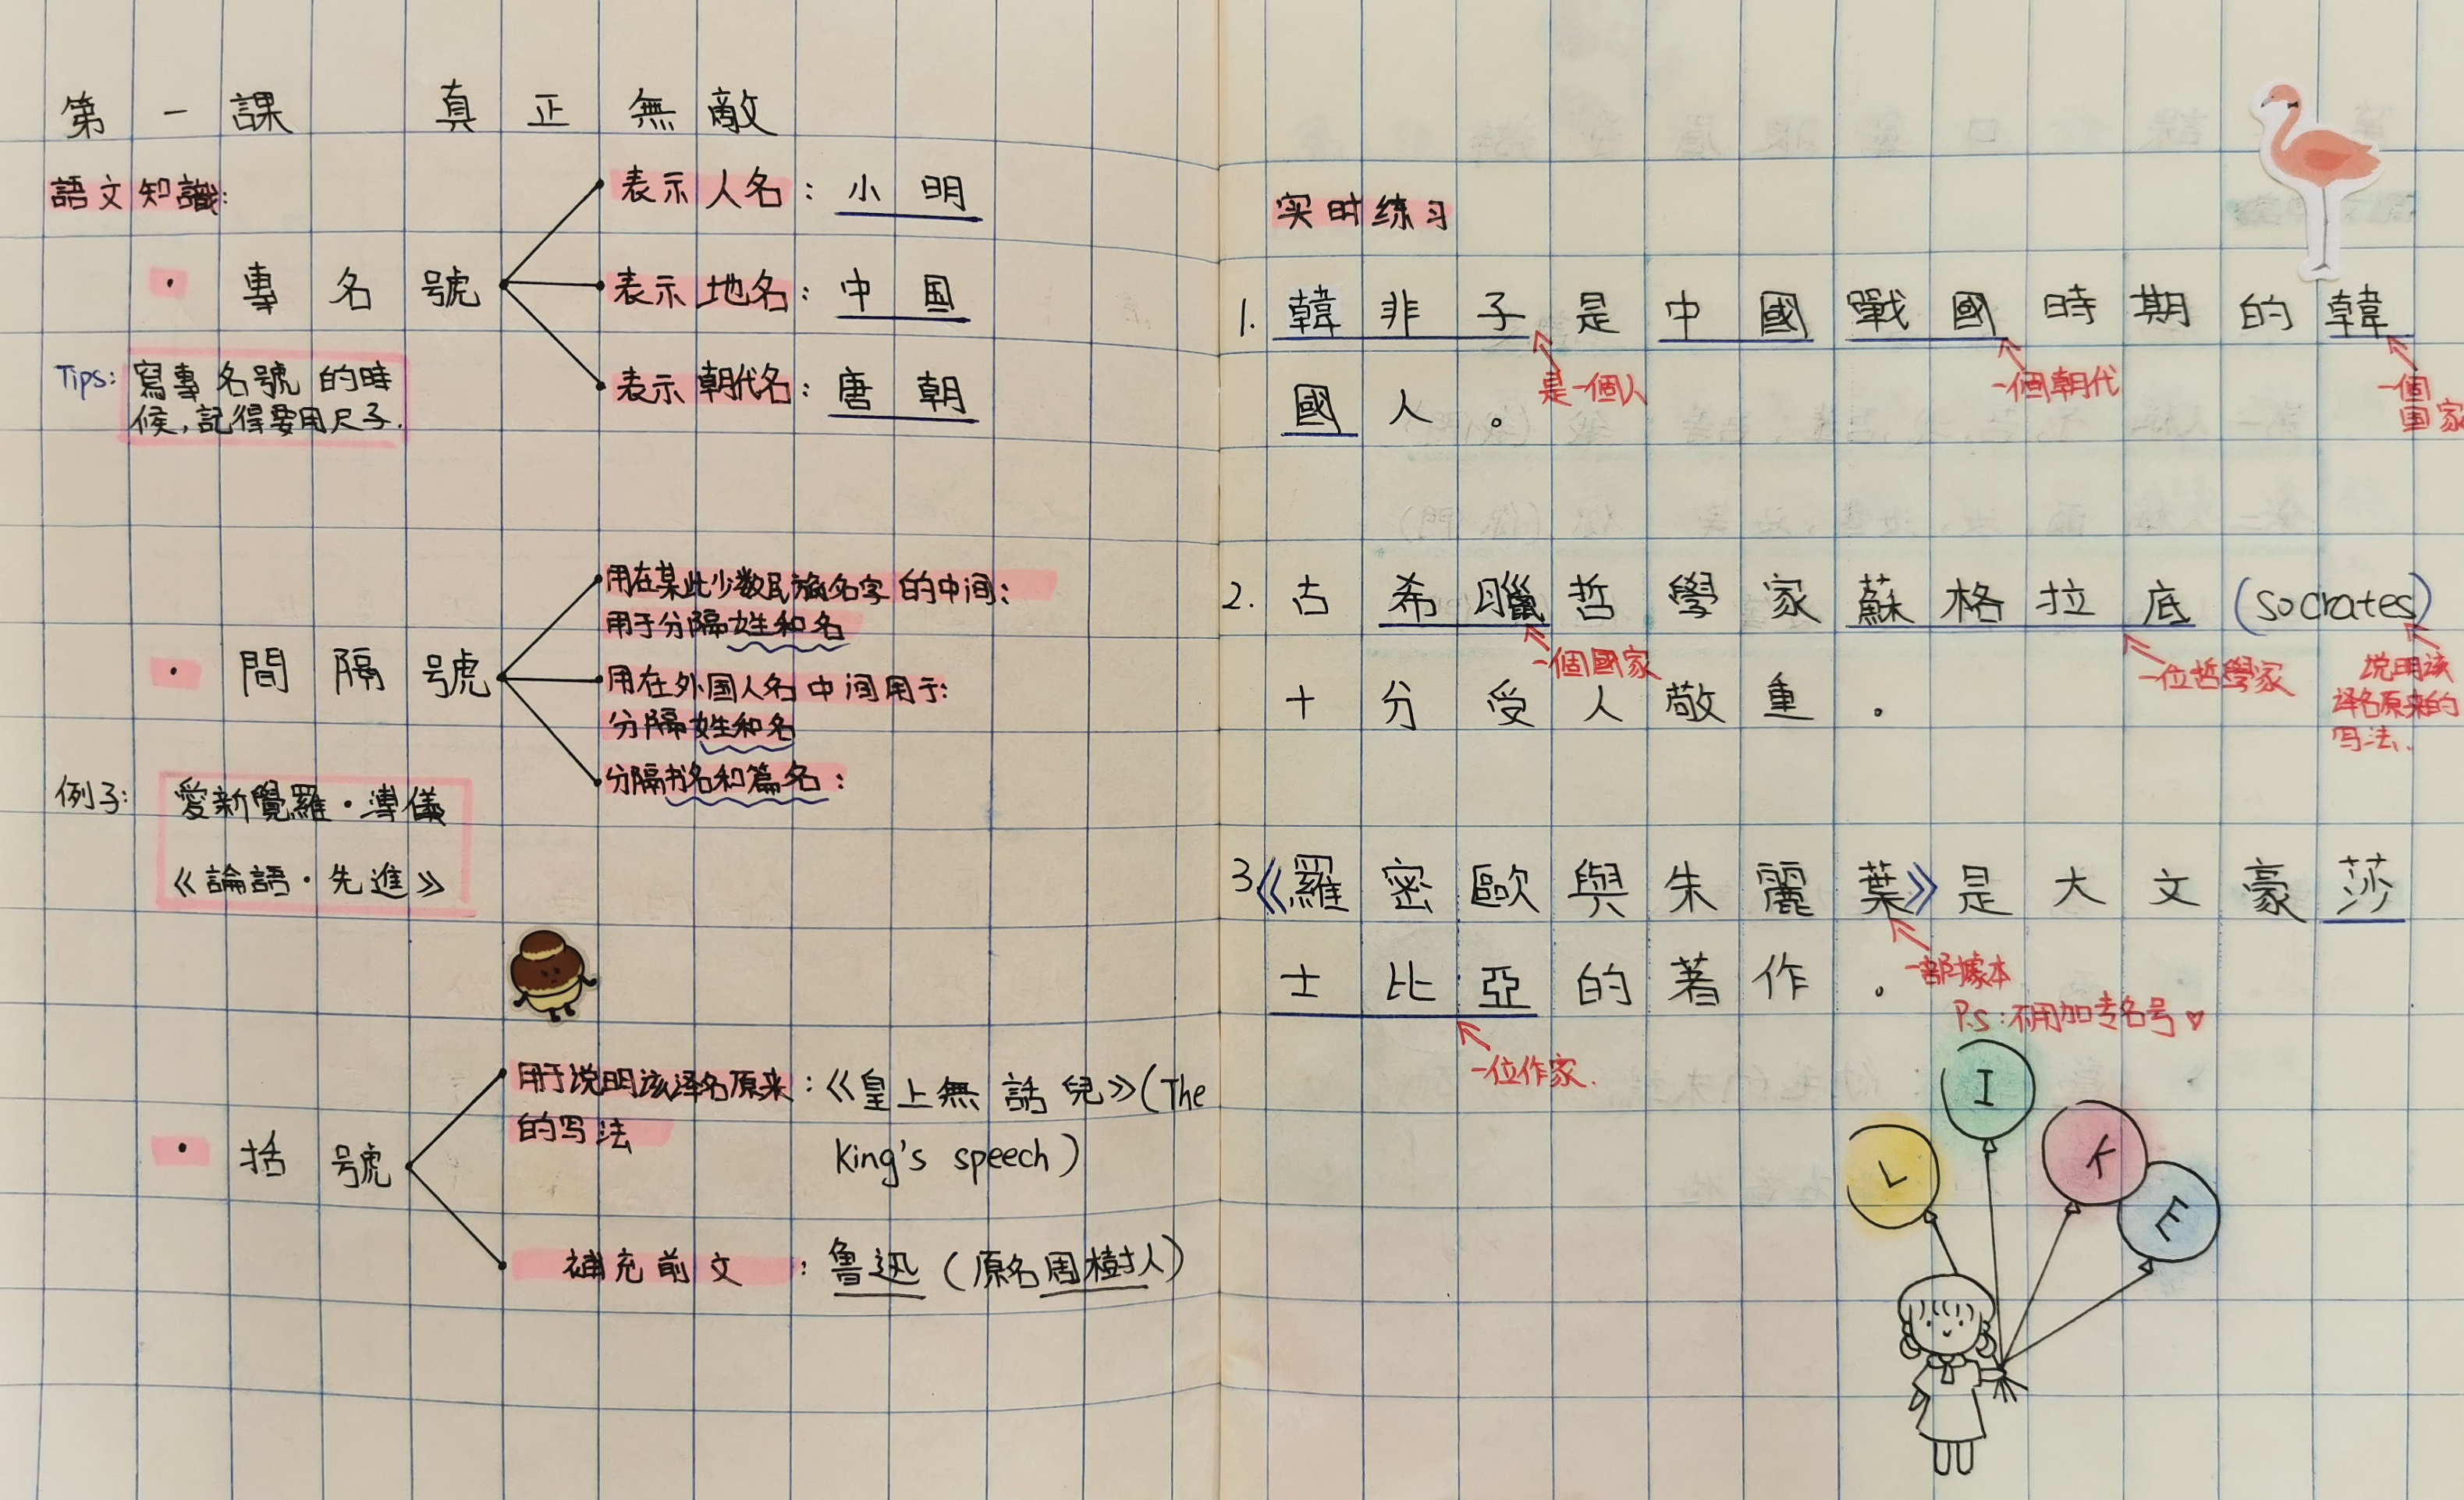 第一課 真正無敵
語文知識:
· 專名號
表示人名: 小明
表示地名: 中国
表示朝代名: 唐朝
Tips: 寫專名號的時
候,記得要用尺子.
· 間隔號
用在某此少数民族名字的中间:
用于分隔姓和名
用在外国人名中间用于:
分隔姓和名
分隔书名和篇名:
例子: 愛新覺羅·溥儀
《論語·先進》
· 括號
用于说明该译名原来
的写法
:《皇上無話兒》(The
King's speech)
補充前文 : 魯迅(原名周樹人)
实时练习
1. 韓非子是中國戰國時期的韓
是一個人
一個朝代
一個
国家
國人。
2. 古希臘哲學家蘇格拉底(Socrates)
一個國家
一位哲學家
说明该
译名原来的
写法.
十分受人敬重。
3《羅密歐與朱麗葉》是大文豪莎
士比亞的著作。
一部據本
P.S:不用加专名号♡
一位作家.
L I K E